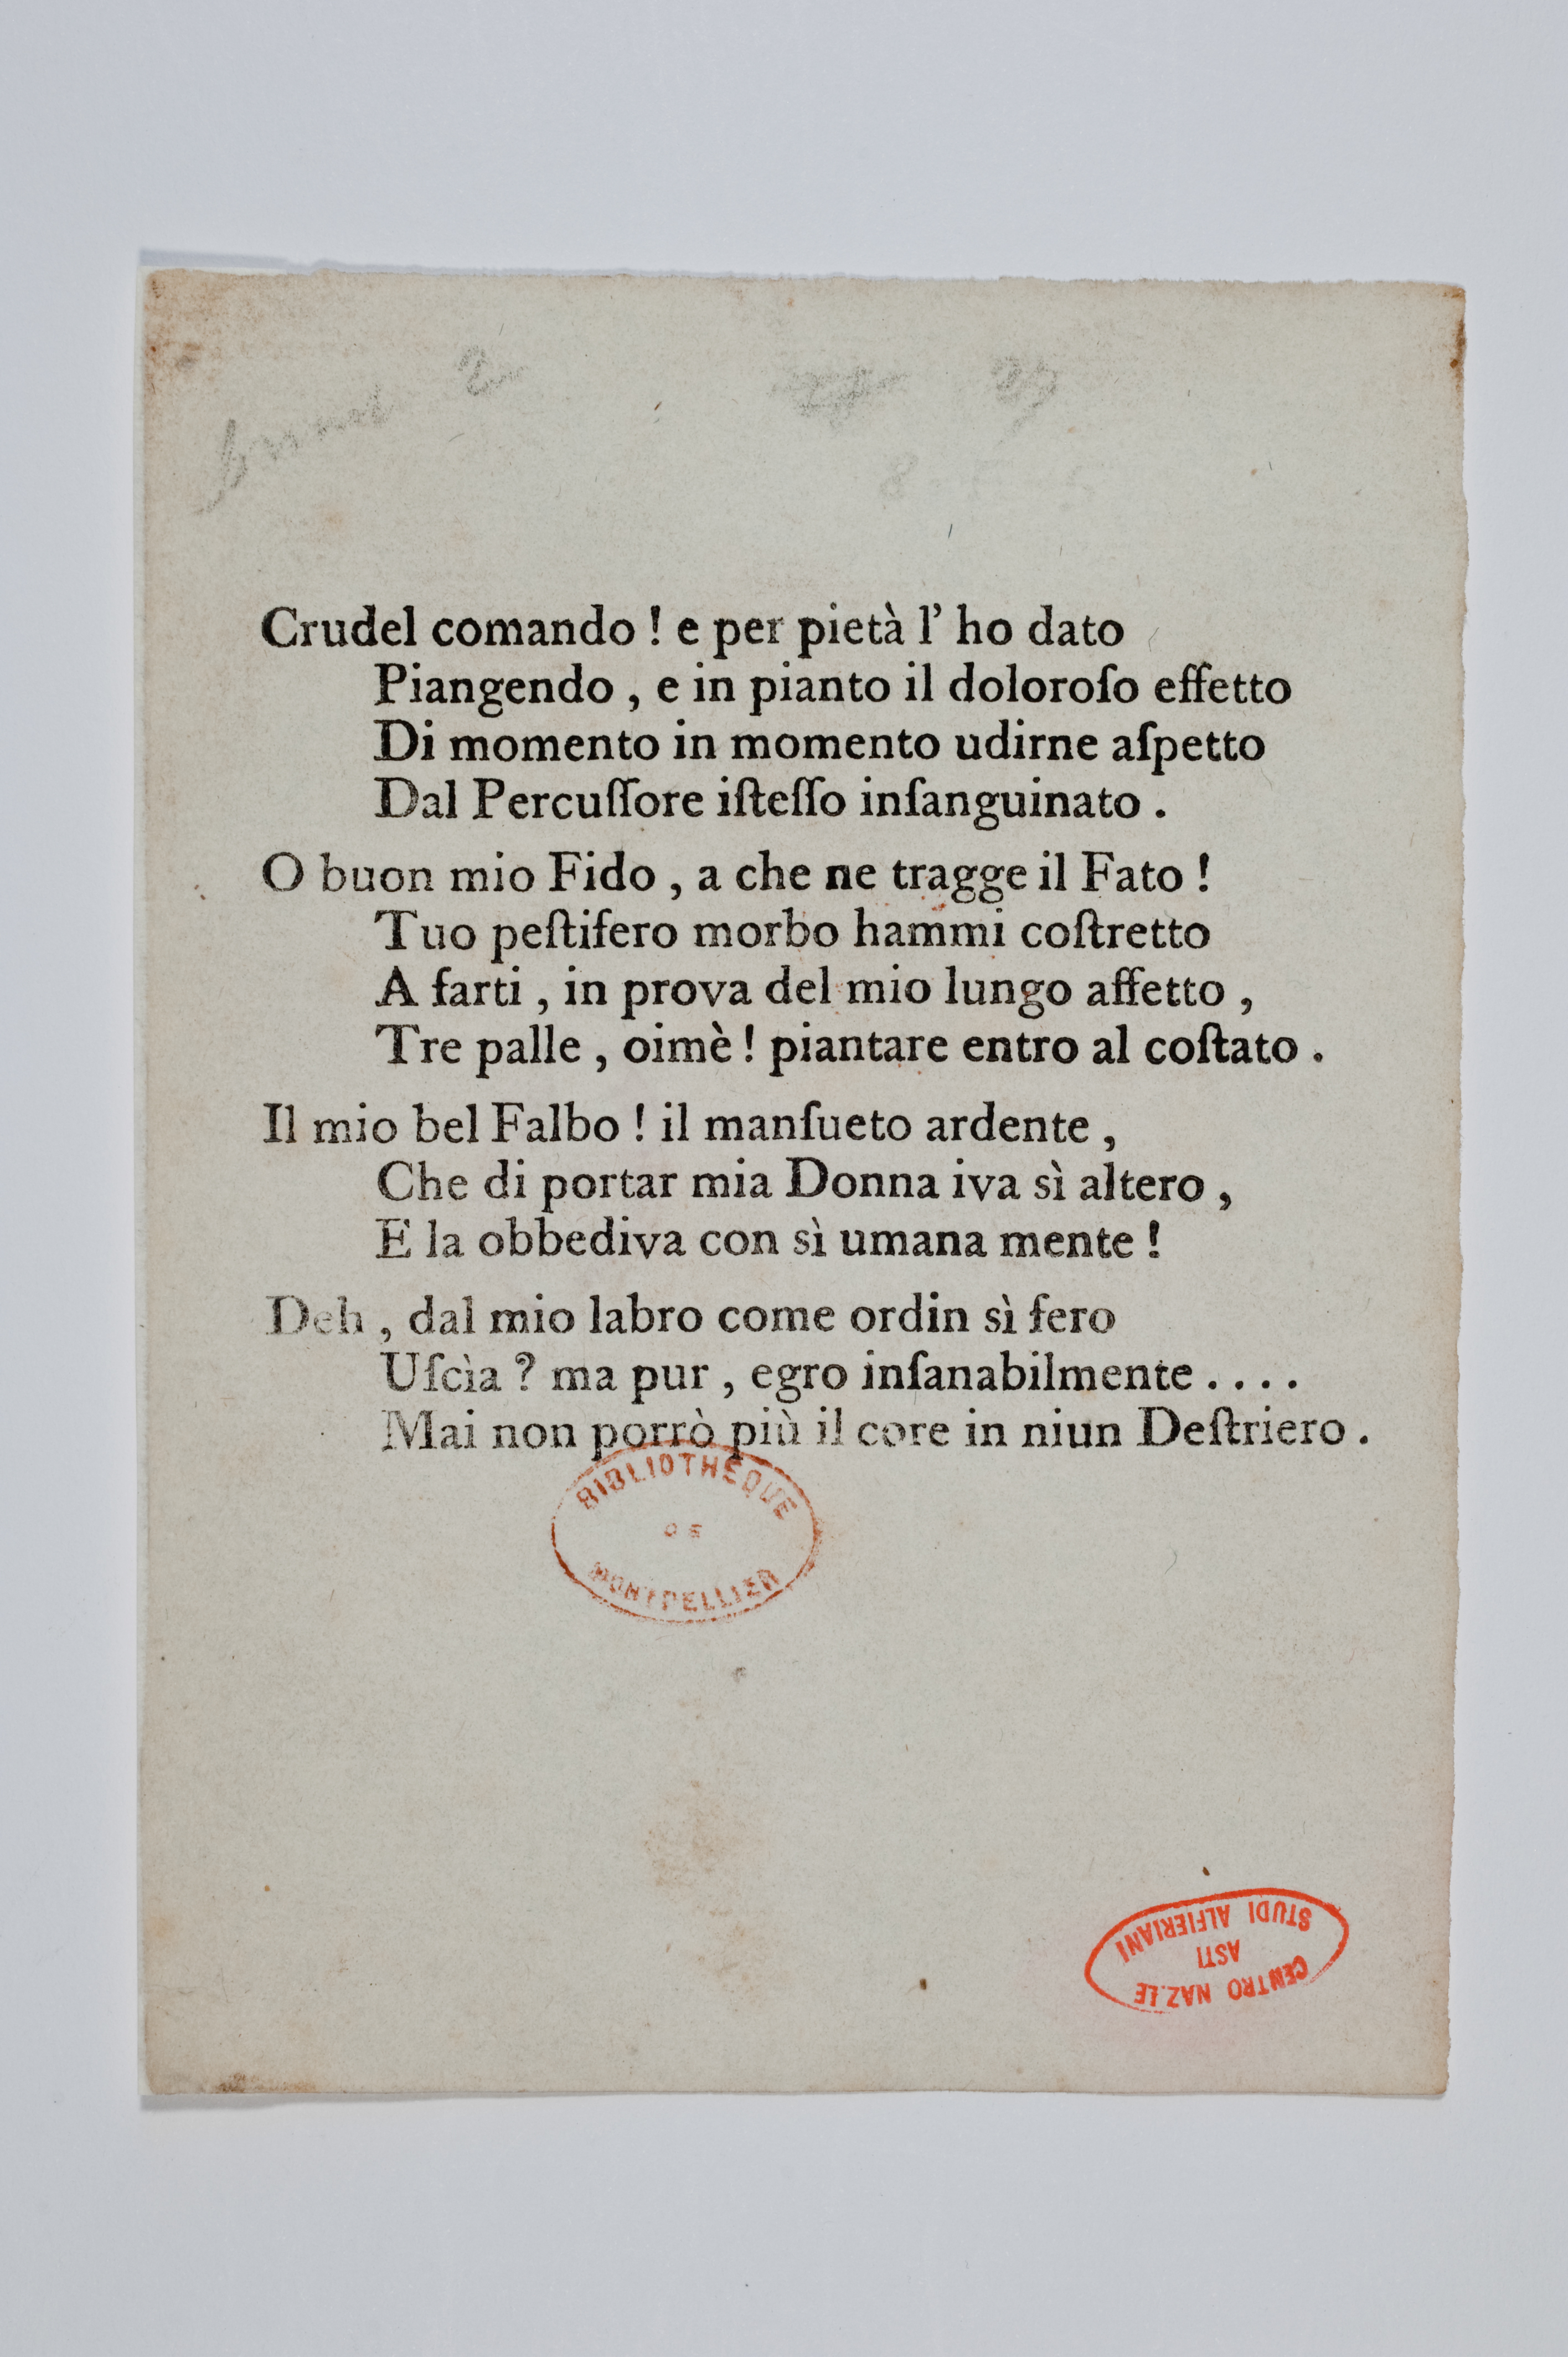 2
27
29
Crudel comando ! e per pietà l' ho dato
Piangendo , e in pianto il doloroſo effetto
Di momento in momento udirne aſpetto
Dal Percuſſore iſteſſo inſanguinato .
O buon mio Fido , a che ne tragge il Fato !
Tuo peſtifero morbo hammi coſtretto
A farti , in prova del mio lungo affetto ,
Tre palle , oimè ! piantare entro al coſtato .
Il mio bel Falbo ! il manſueto ardente ,
Che di portar mia Donna iva sì altero ,
E la obbediva con sì umana mente !
Deh , dal mio labro come ordin sì fero
Uſcìa ? ma pur , egro inſanabilmente . . . .
Mai non porrò più il core in niun Deſtriero .
BIBLIOTHÈQUE
DE
MONTPELLIER
CENTRO NAZ.LE
ASTI
STUDI ALFIERIANI